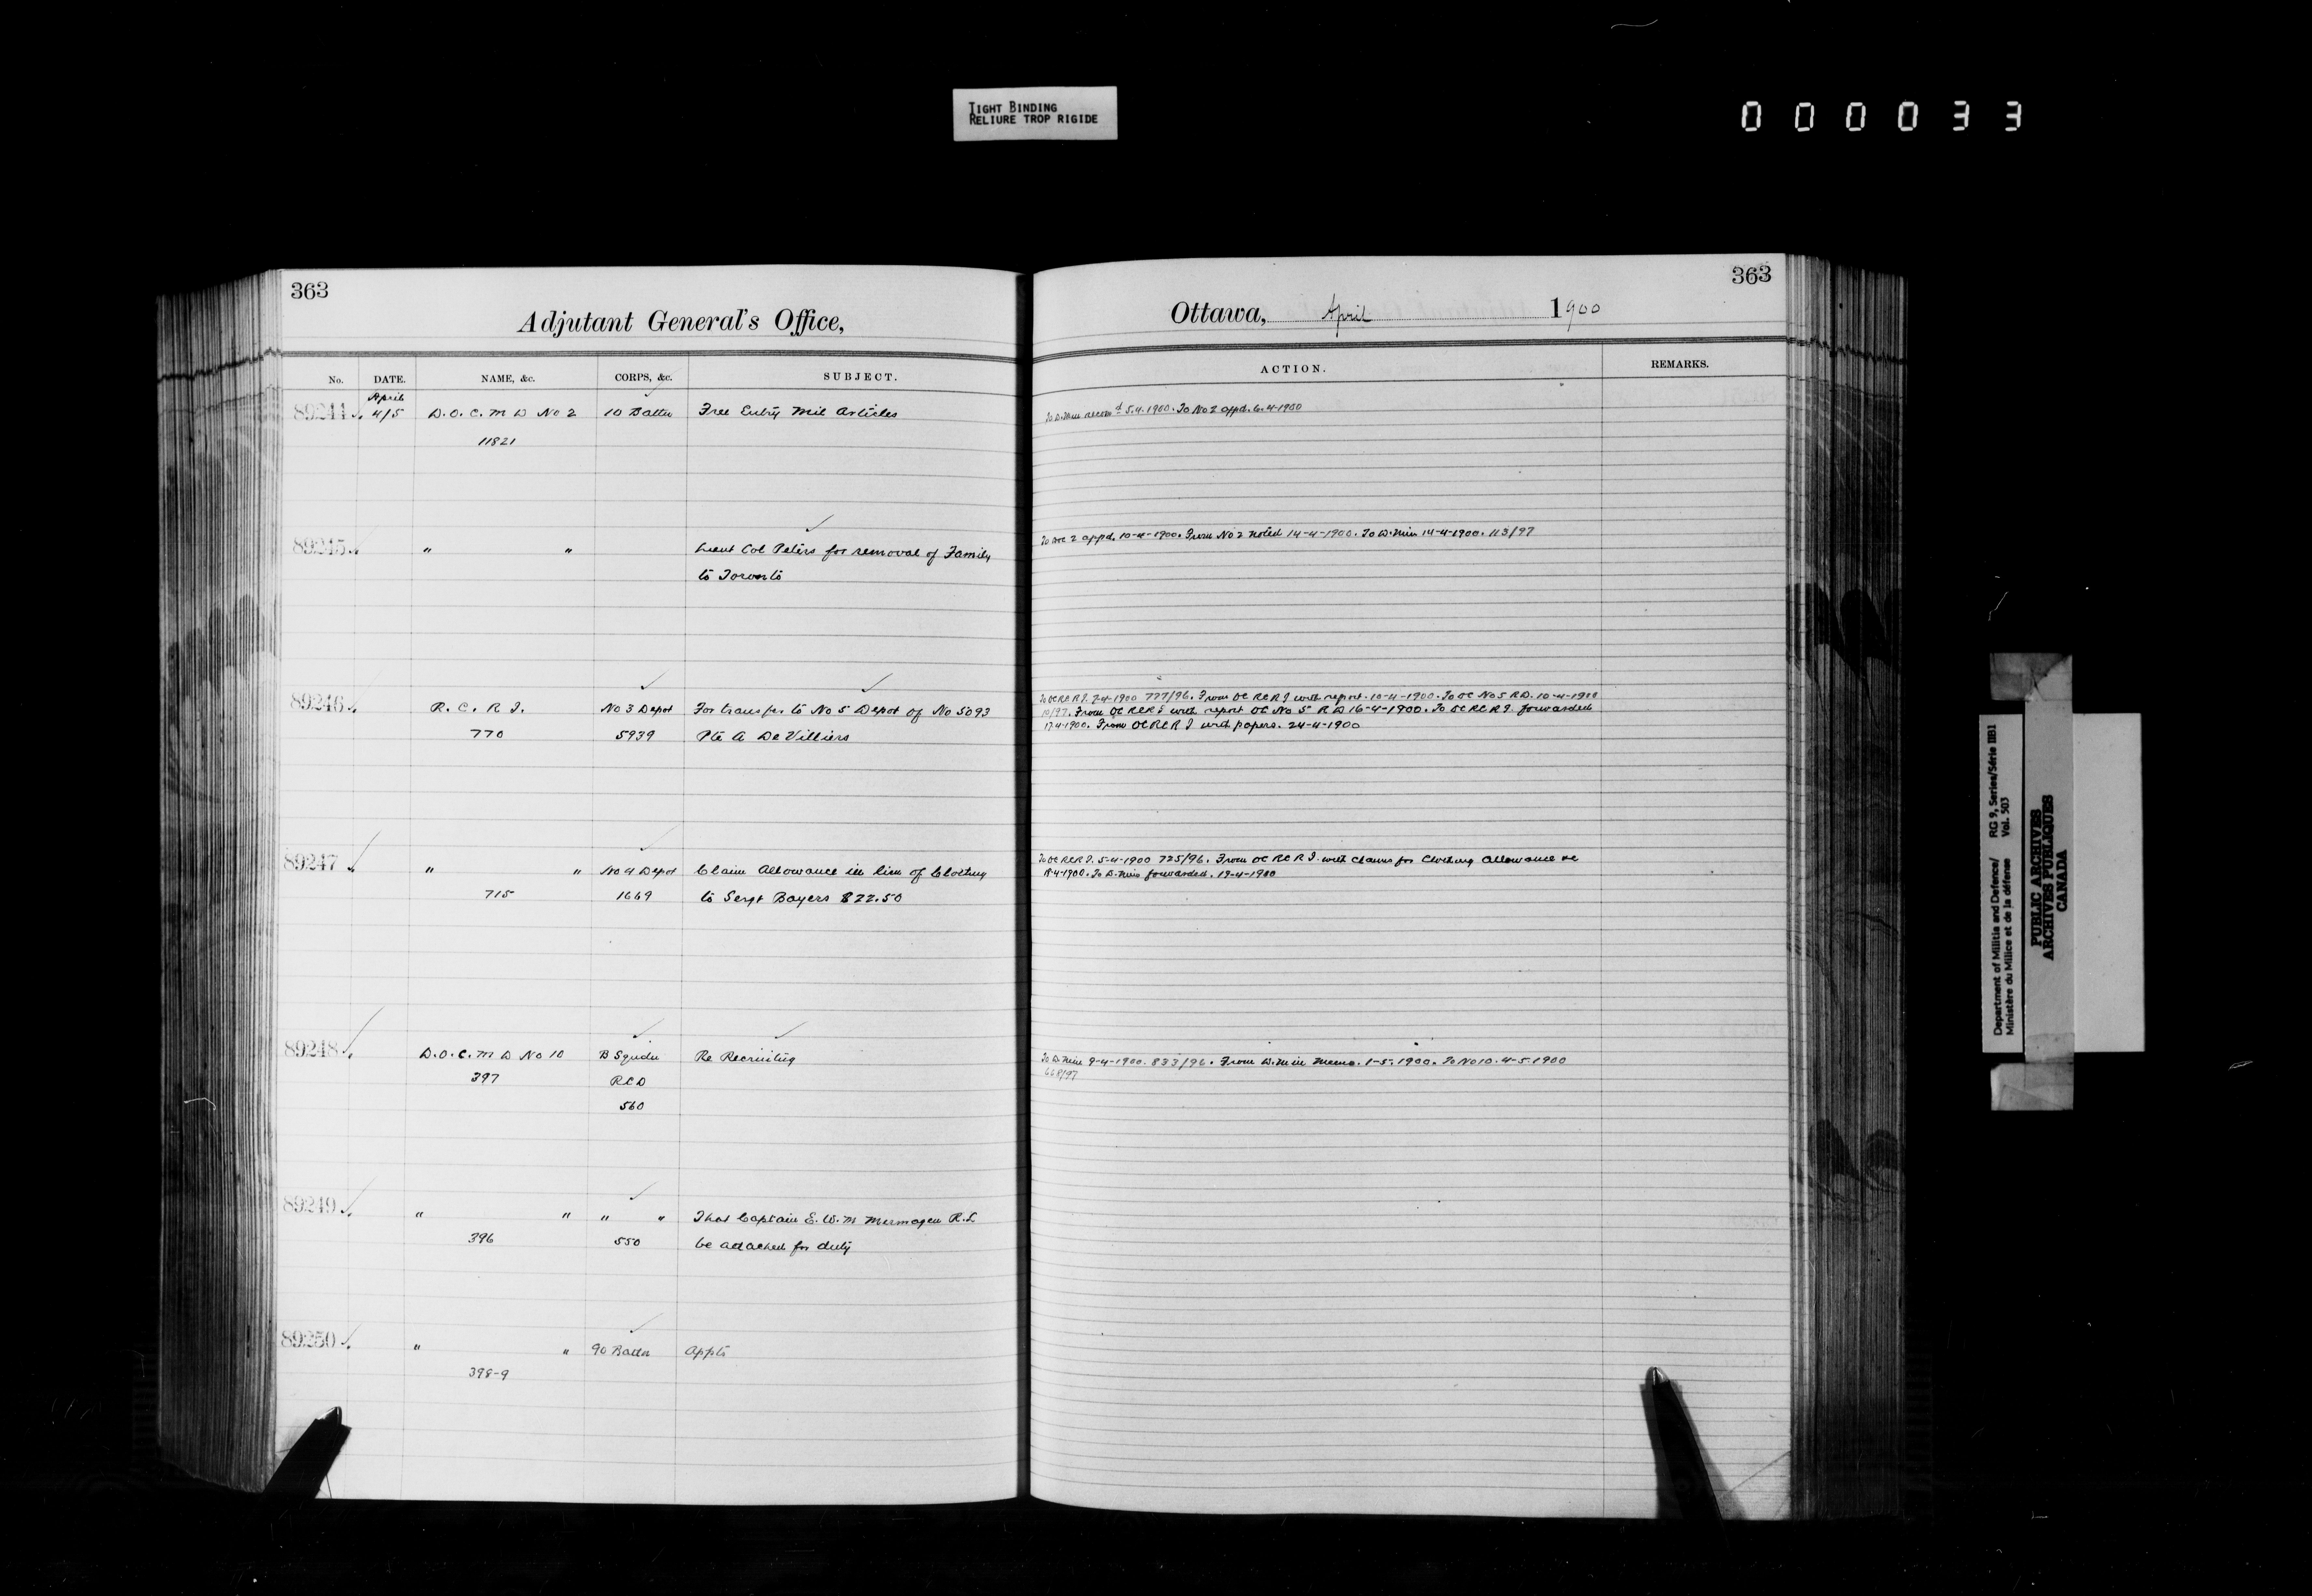 TIGHT BINDING
RELIURE TROP RIGIDE
000033
363
Adjutant General's Office,
No. DATE. NAME, &c. CORPS, &c. SUBJECT.
April
89244 4/5 D.O.C. M D No 2 10 Battn Free Entry Mil Articles
11821
89245 " " Lieut Col Peters for removal of Family
to Toronto
89246 R. C. R I. No 3 Depot For transfer to No 5 Depot of No 5093
770 5939 Pte A De Villiers
89247 " " No 4 Depot Claim Allowance in lieu of Clothing
715 1669 to Sergt Bayers $22.50
89248 D.O.C. M D No 10 B Sqdn Re Recruiting
397 RCD
560
89249 " " " " That Captain E. W. M Mermagen R.L
396 550 be adached for duty
89250 " " 90 Battn Appts
398-9
363
Ottawa, April 1900
ACTION. REMARKS.
To D. Min recomd 5.4.1900. To No 2 appd. 6.4-1900
To DOC 2 appd. 10-4-1900. From No 2 noted 14-4-1900. To D. Min 14-4-1900. 113/97
To OC RCR I. 7-4-1900 777/96. From OC RCR I with report. 10-4-1900. To OC No 5 RD. 10-4-1900
10/97. From OC RCR I with report OC No 5 R D 16-4-1900. To OC RCR I. forwarded
17-4-1900. From OC RCR I with papers. 24-4-1900
To OC RCR I. 5-4-1900 725/96. From OC RCR I. with claims for Clothing Allowance &c
18-4-1900. To D. Min forwarded. 19-4-1900
To D. Min 9-4-1900. 833/96. From D. Min Memo. 1-5-1900. To No 10. 4-5-1900
668/97
Department of Militia and Defence/ RG 9, Series/Série IIB1
Ministère du Milice et de la défense Vol. 503
PUBLIC ARCHIVES
ARCHIVES PUBLIQUES
CANADA